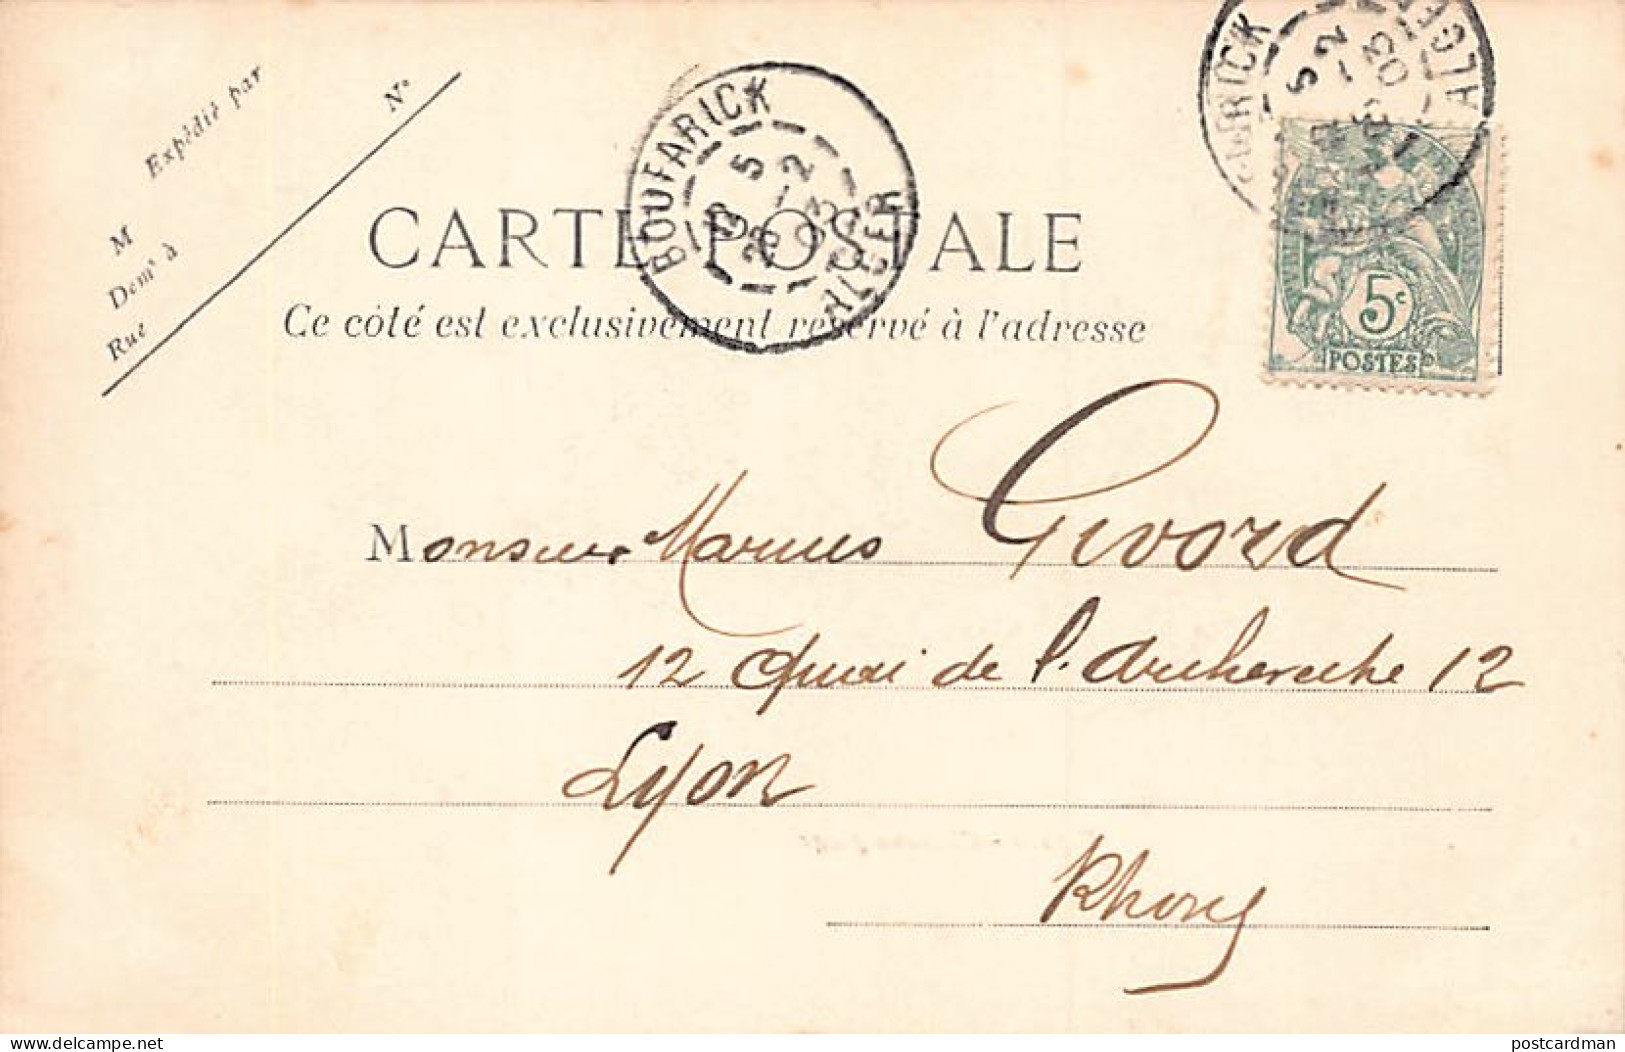 Expédié par
M
Dem^t à
Rue
N°
BOUFARICK
5
28 -2
03
ALGER
CARTE POSTALE
Ce côté est exclusivement réservé à l'adresse
ALGER
5 2
03
5c
POSTES
Monsieur Marius Givord
12 Quai de l'Archevêché 12
Lyon
Rhône
delcampe.net
postcardman